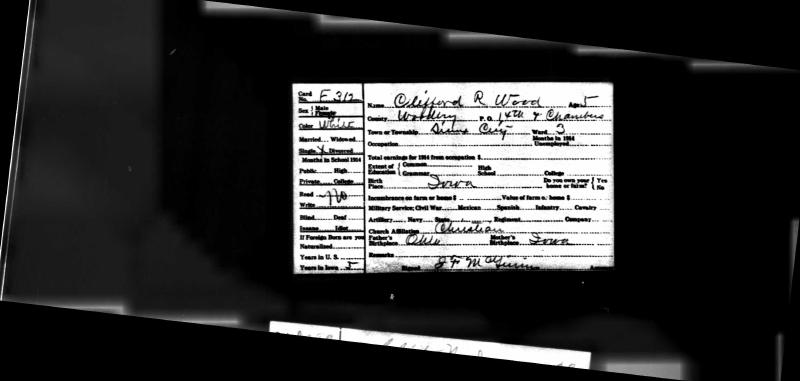 Card No. E 312
Sex Male Female
Color White
Married Widowed
Single X Divorced
Months in School 1914
Public High
Private College
Read
Write No
Blind Deaf
Insane Idiot
If Foreign Born are you
Naturalized
Years in U. S.
Years in Iowa 5
Name Clifford R Wood Age 5
County Woodbury P. O. 14th & Chambers
Town or Township Sioux City Ward 3
Occupation Months in 1914 Unemployed
Total earnings for 1914 from occupation $
Extent of Education Common High School College
Grammar
Birth Place Iowa Do you own your home or farm? Yes No
Incumbrance on farm or home $ Value of farm or home $
Military Service; Civil War Mexican Spanish Infantry Cavalry
Artillery Navy State Regiment Company
Church Affiliation Christian
Father's Birthplace Ohio Mother's Birthplace Iowa
Remarks
Signed